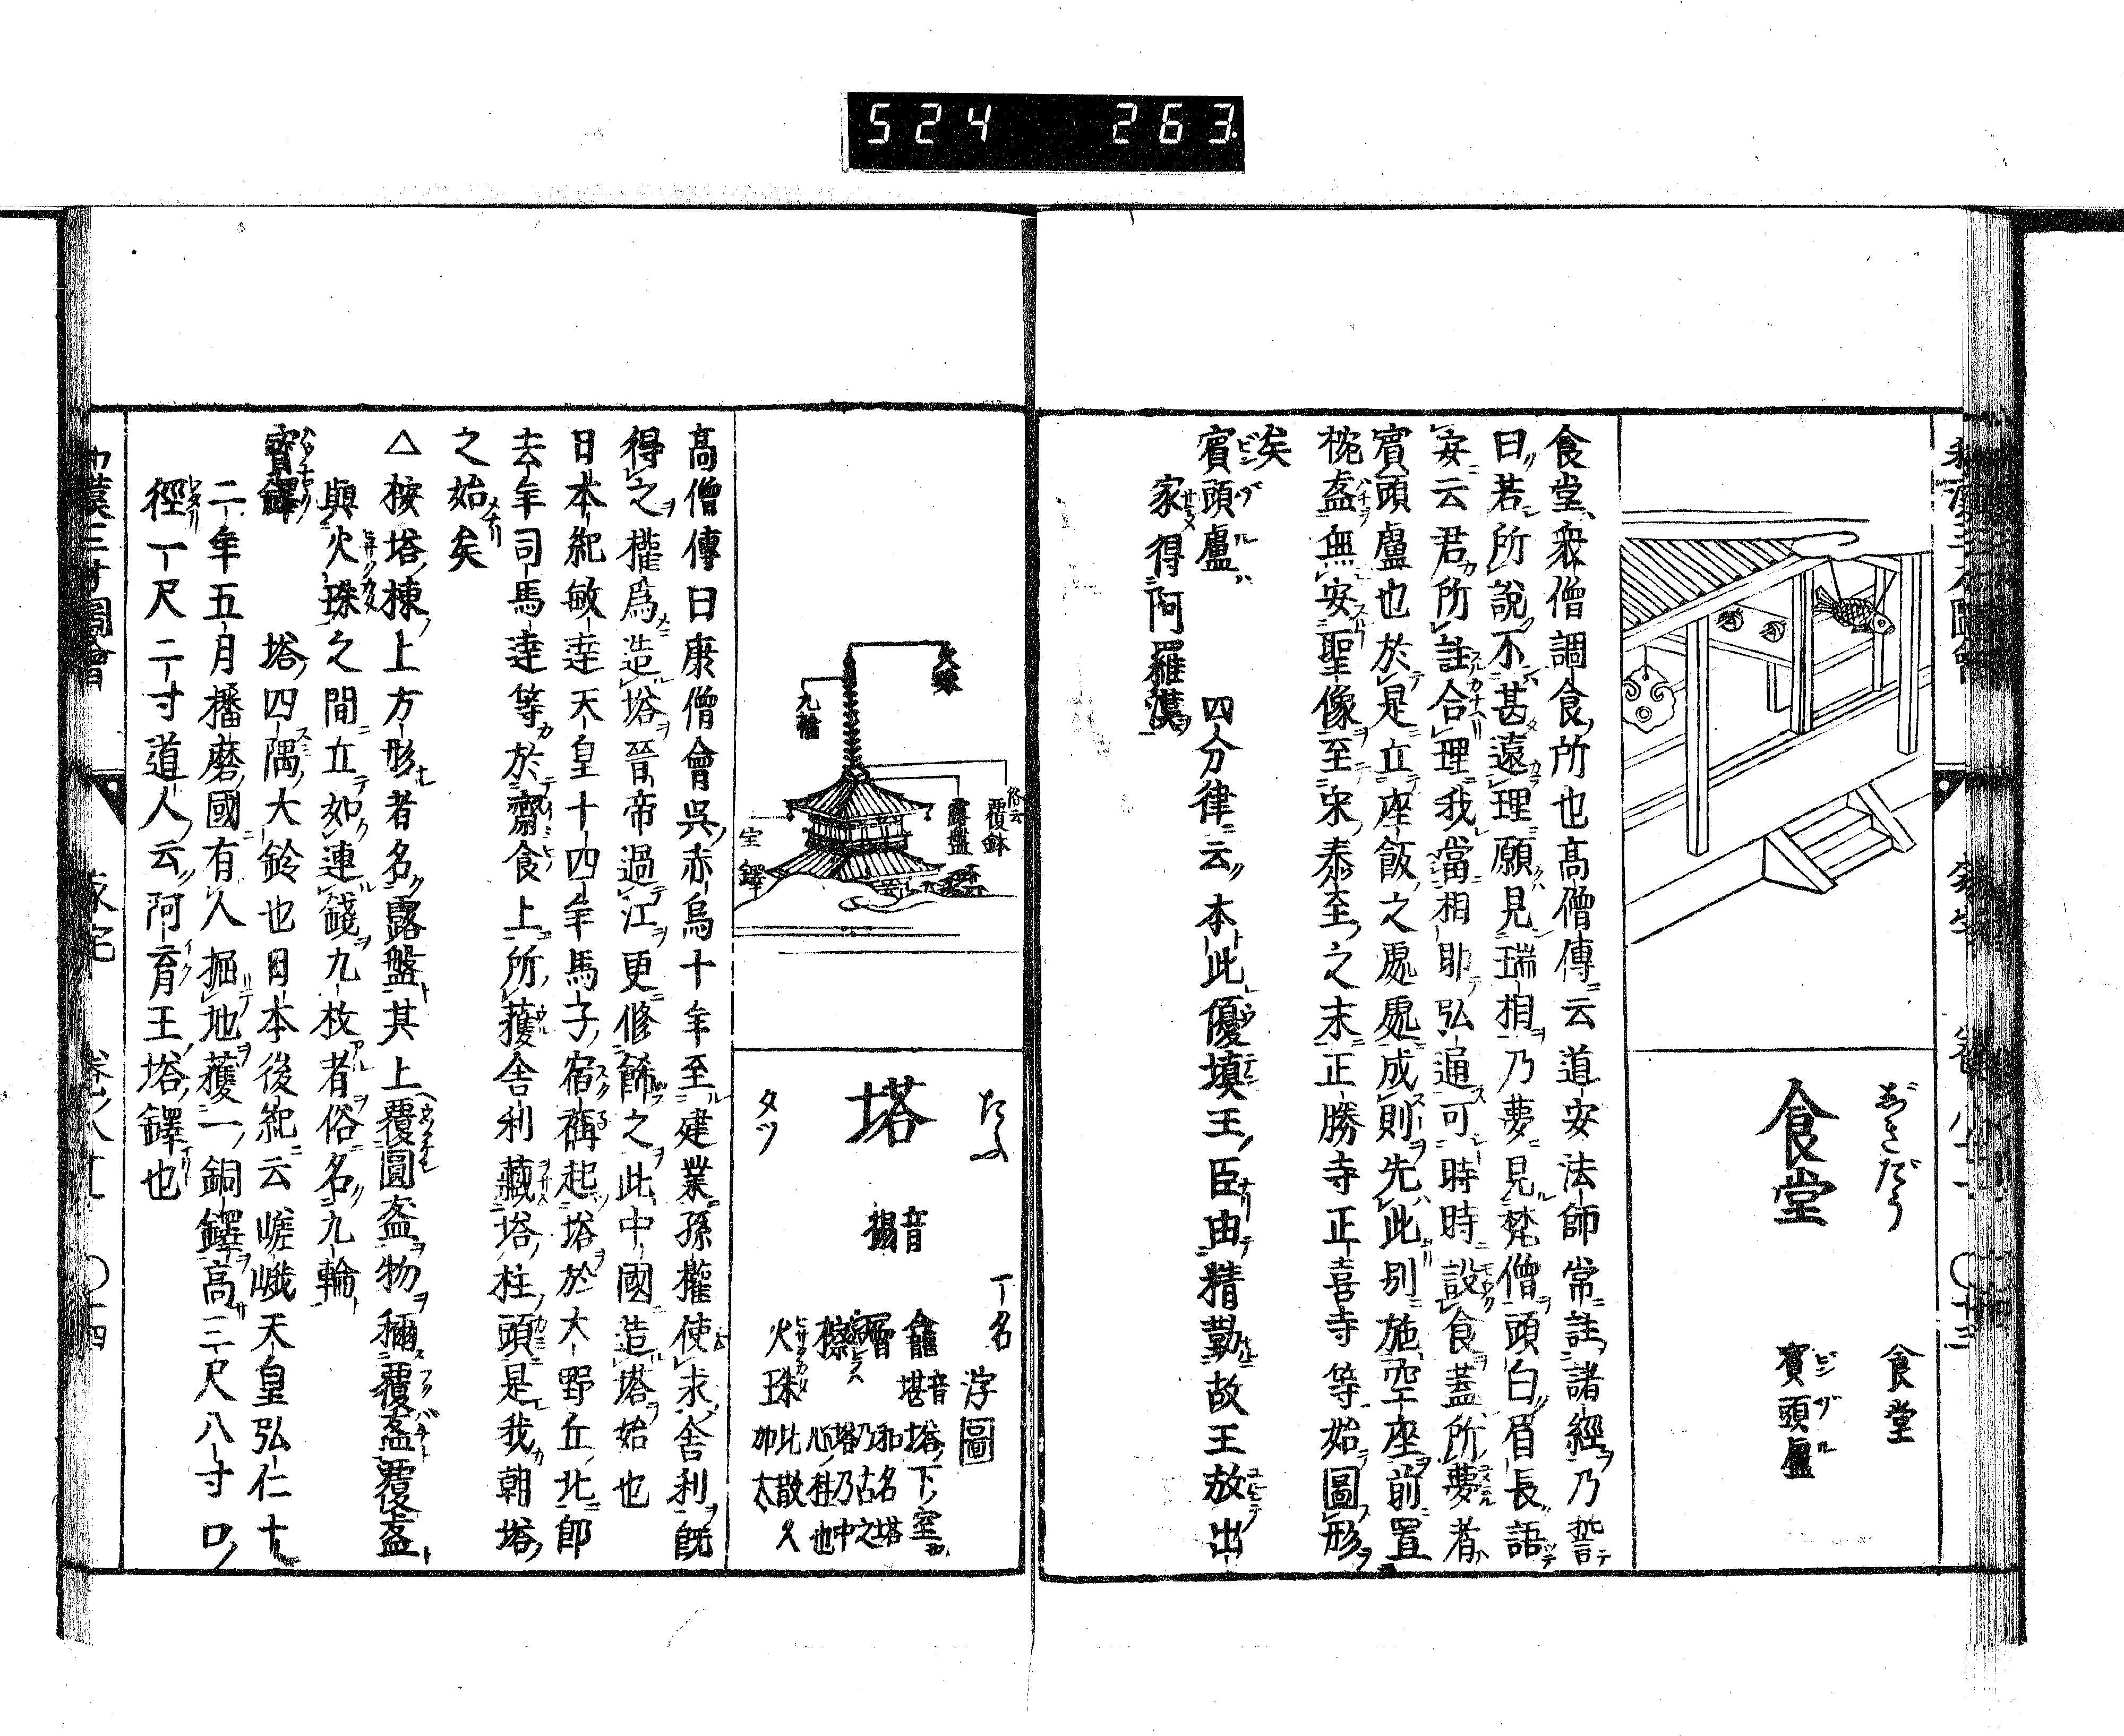 524 263
じきだう
食堂
食堂
賓頭盧
食堂衆僧調食所也高僧傳云道安法師常註諸經乃誓
曰若所說不甚遠理願見瑞相乃夢見梵僧頭白眉長語
安云君所註合理我當相助弘通可時時設食蓋所夢者
賓頭盧也於是立座飯之處處成則先此別施空座前置
椀盔無安聖像至宋泰至之末正勝寺正喜寺等始圖形
矣
賓頭盧 四分律云本此優填王臣由精勤故王放出
家得阿羅漢
火珠
九輪
俗云覆鉢
露盤
宝鐸
たふ
塔
音榻
タツ
一名 浮圖
龕 音堪 塔下室
層 和名
檫 塔乃心柱也
火珠 比散久加太
高僧傳曰康僧會吳赤烏十年至建業孫權使求舍利既
得之權爲造塔晉帝過江更修餝之此中國造塔始也
日本紀敏達天皇十四年馬子宿祢起塔於大野丘北卽
去年司馬達等於齋食上所獲舍利藏塔柱頭是我朝塔
之始矣
△按塔棟上方形者名露盤其上覆圓盔物稱覆盔覆盔
與火珠之間立如連錢九枚者俗名九輪
寶鐸 塔四隅大鈴也日本後紀云嵯峨天皇弘仁十
二年五月播磨國有人掘地獲一銅鐸高三尺八寸口
徑一尺二寸道人云阿育王塔鐸也